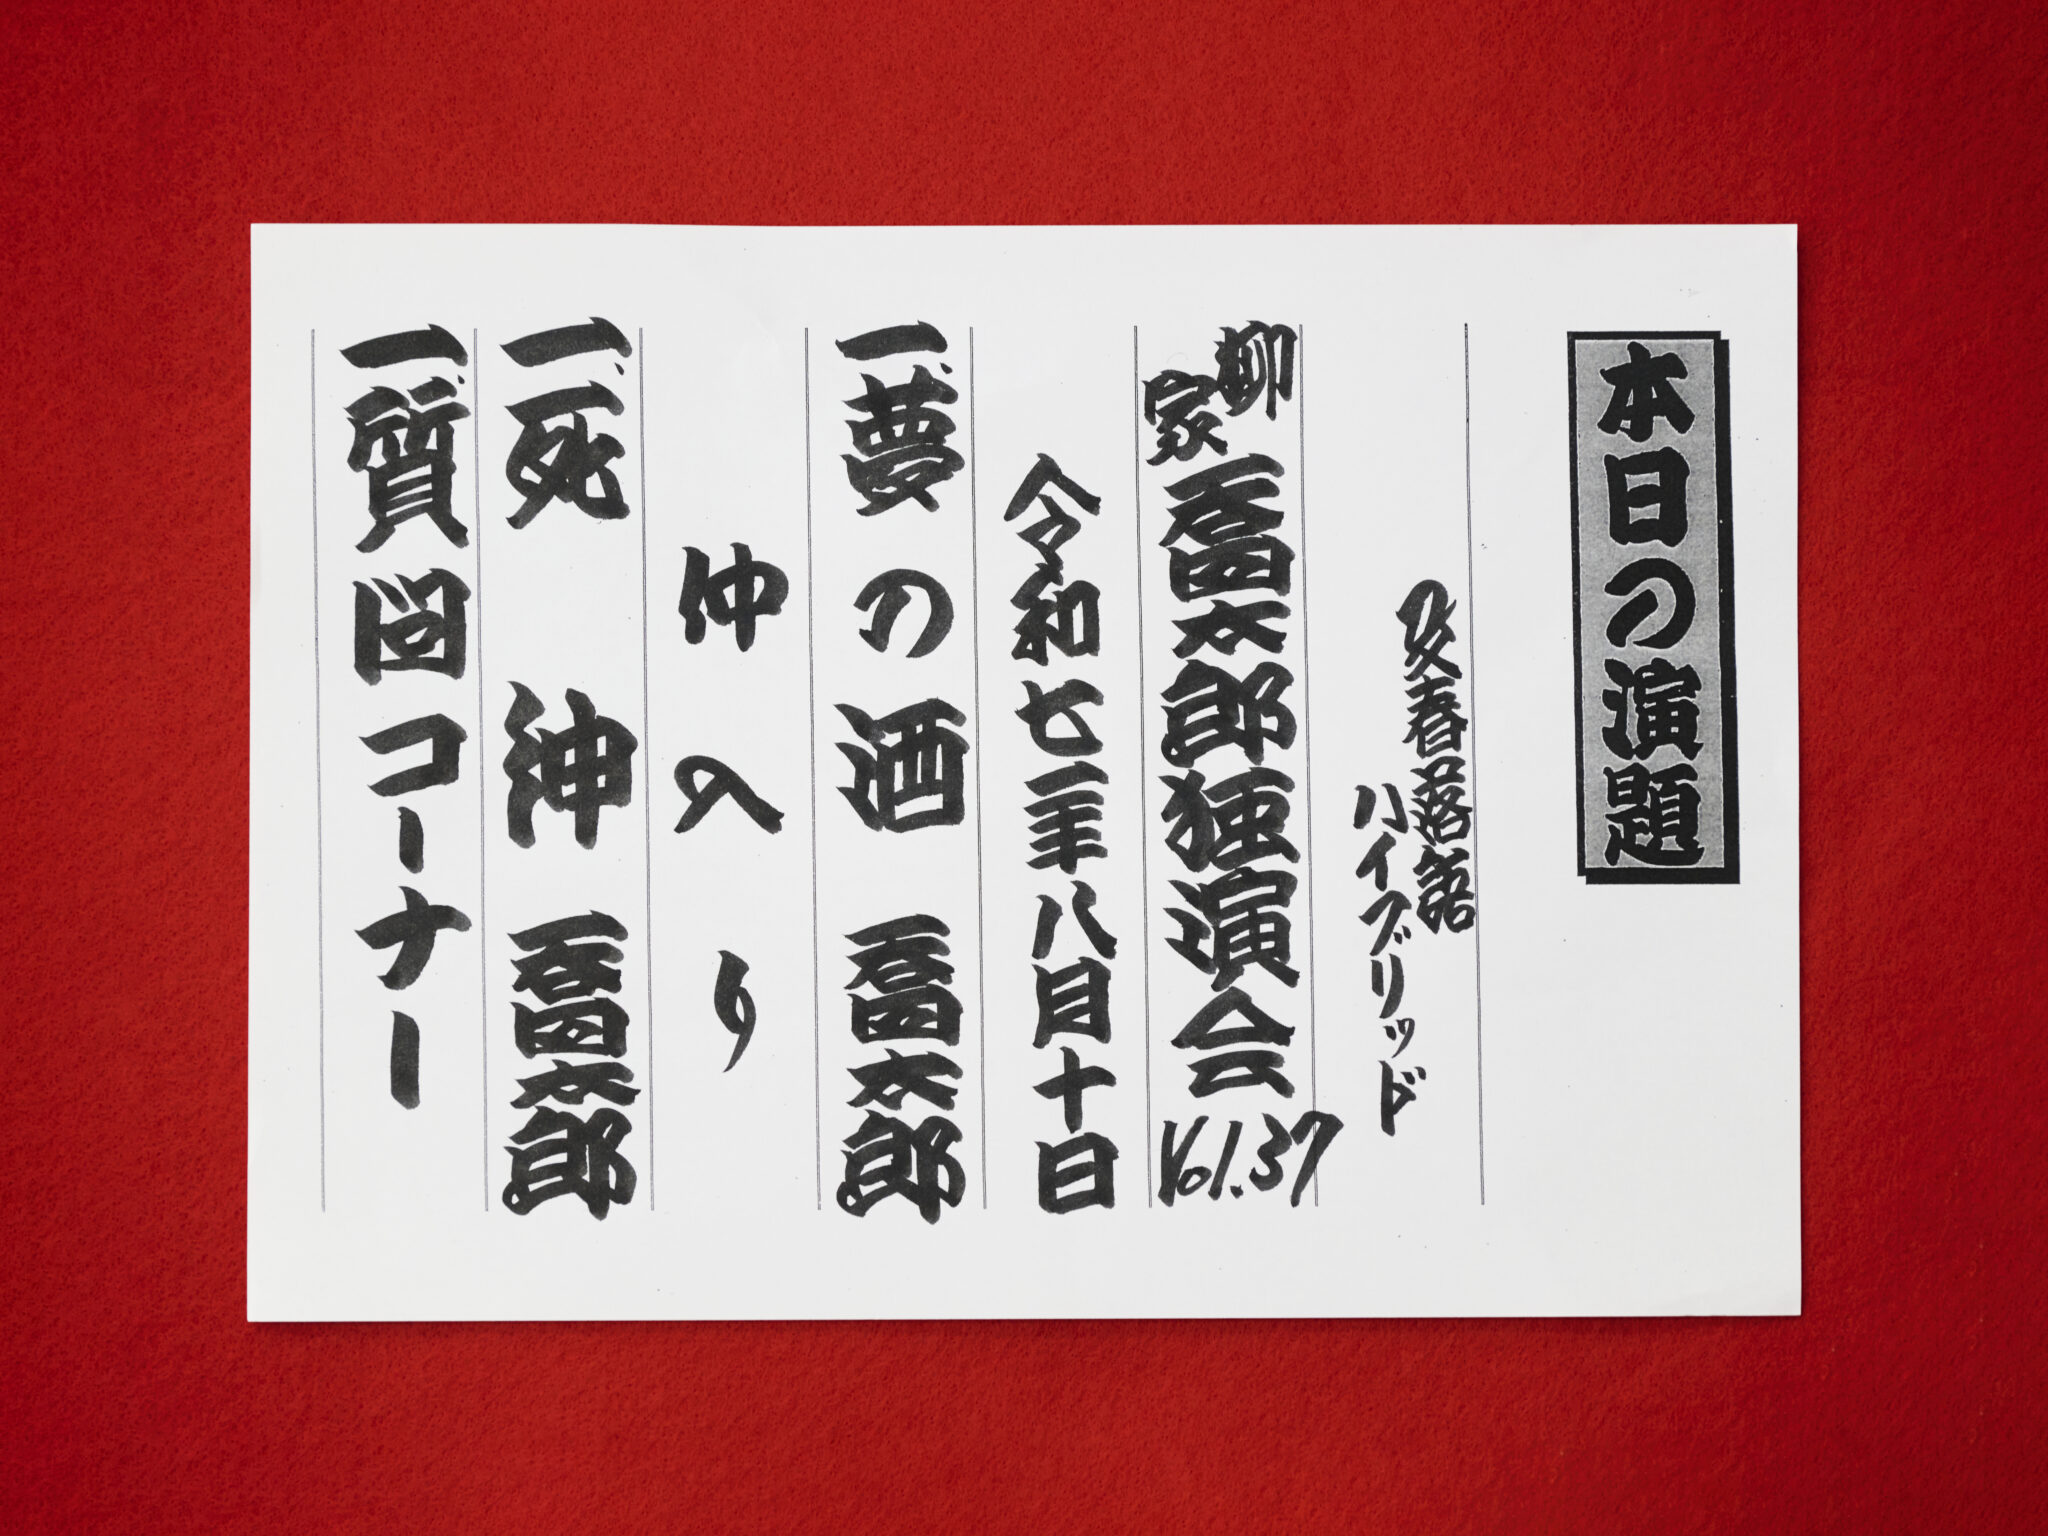 本日の演題
文春落語
ハイブリッド
柳家喬太郎独演会 Vol.37
令和七年八月十日
一、夢の酒 喬太郎
仲入り
一、死神 喬太郎
一、質問コーナー